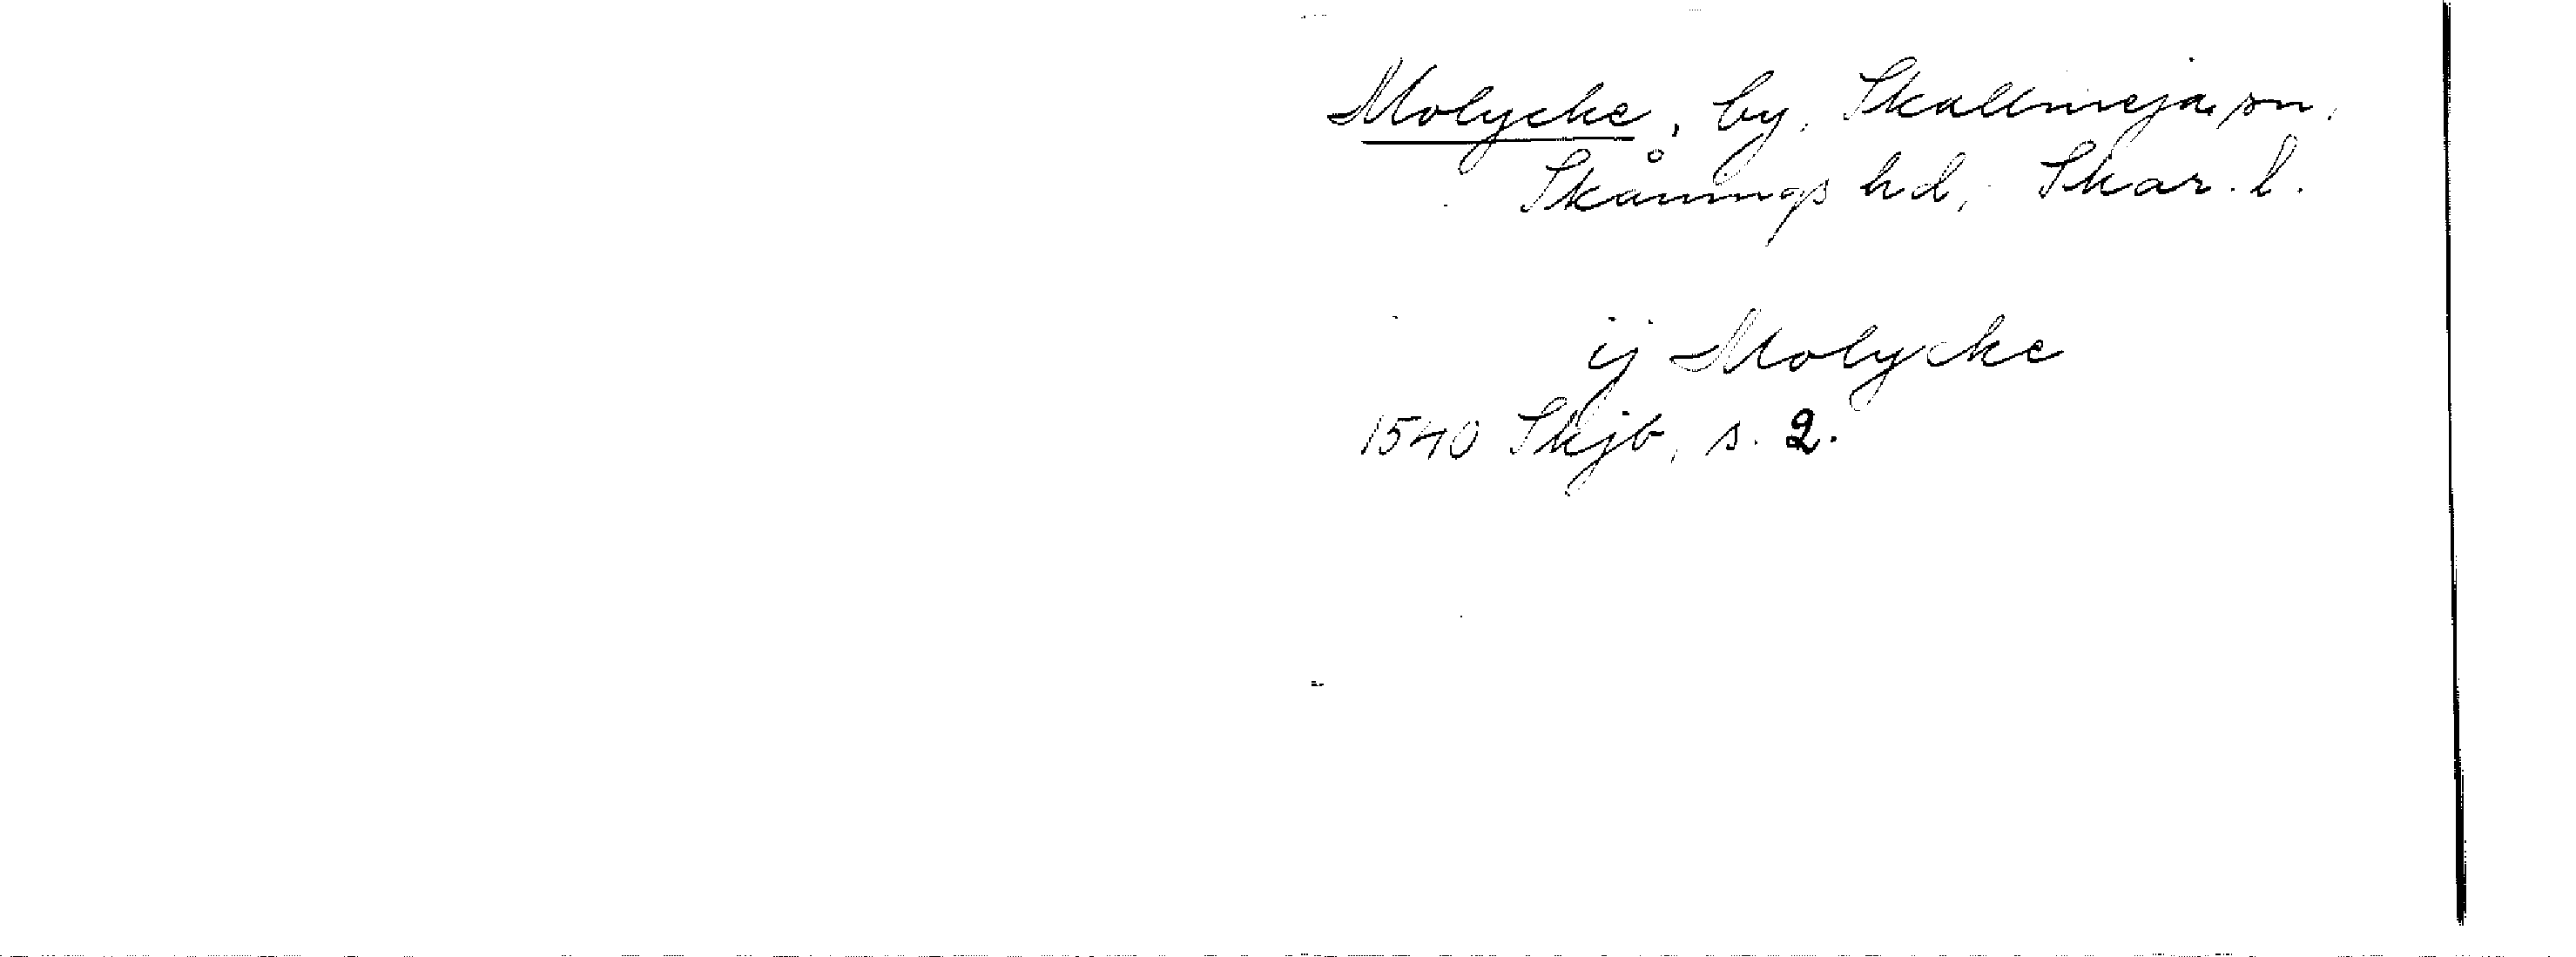 Molycke, by, Skallmeja sn,
Skånings hd, Skar. l.
ij Molycke
1540 Skjb, s. 2.